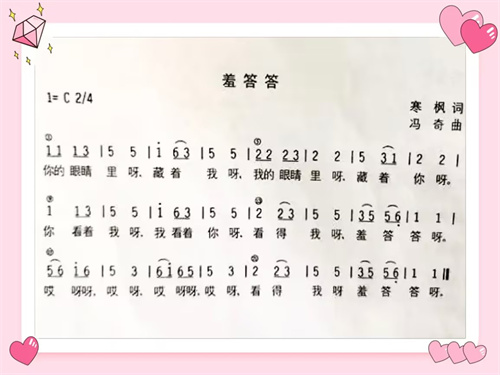 羞答答
1= C 2/4
寒 枫 词
冯 奇 曲
11 13 | 5 5 | i 63 | 5 5 | 22 23 | 2 2 | 5 31 | 2 2 |
你的 眼睛 里 呀, 藏 着 我 呀, 我的 眼睛 里 呀, 藏 着 你 呀。
1 13 | 5 5 | i 63 | 5 5 | 2 23 | 5 5 | 35 56 | 1 1 |
你 看着 我 呀, 我 看着 你 呀, 看 得 我 呀, 羞 答 答 呀。
56 i6 | 3 5 | 6i 65 | 3 5 | 2 23 | 5 5 | 35 56 | 1 1 ‖
哎 呀呀, 哎 呀, 哎 呀呀, 哎 呀, 看 得 我 呀 羞 答 答 呀。